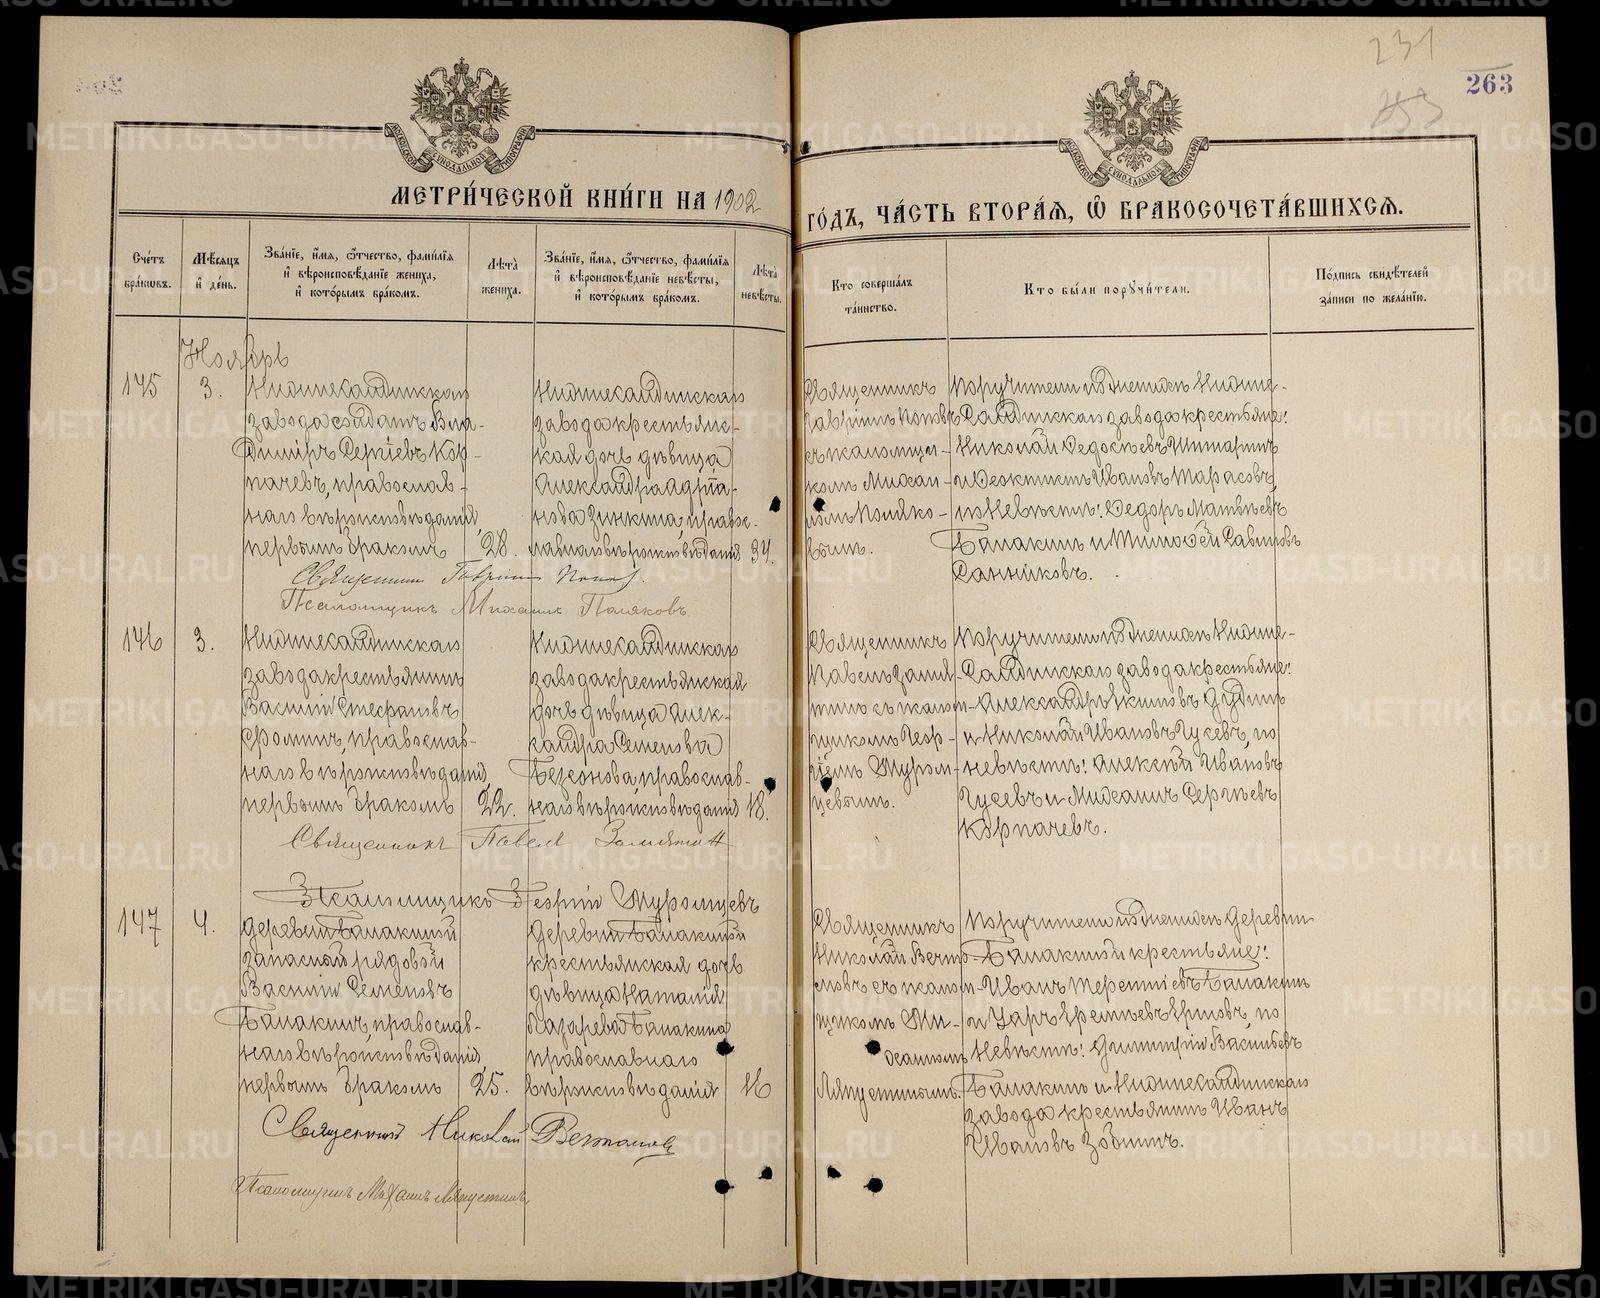 231
263
253
МЕТРИ́ЧЕСКОЙ КНИ́ГИ НА 1902
ГО́ДЪ, ЧА́СТЬ ВТОРА́Я, Ѡ БРАКОСОЧЕТА́ВШИХСЯ.
МОСКОВСКОЙ СУНОДАЛЬНОЙ ТИПОГРАФІИ
МОСКОВСКОЙ СУНОДАЛЬНОЙ ТИПОГРАФІИ
Сче́тъ бра́кѡвъ.
Мѣ́сяцъ и҆ де́нь.
Зва́нїе, и҆́мя, ѻ҆́тчество, фами́лїя и҆ вѣроисповѣ́данїе жениха̀, и҆ кото́рымъ бра́комъ.
Лѣта̀ жениха̀.
Зва́нїе, и҆́мя, ѻ҆́тчество, фами́лїя и҆ вѣроисповѣ́данїе невѣ́сты, и҆ кото́рымъ бра́комъ.
Лѣта̀ невѣ́сты.
Кто соверша́лъ та́инство.
Кто бы́ли поручи́тели.
По́дпись свидѣ́телей за́писи по жела́нїю.
Ноябрь
145
3.
Нижнесалдинскаго
завода солдатъ Вла-
димiръ Сергiевъ Кор-
пачевъ, православ-
наго вѣроисповѣданiя,
первымъ бракомъ
28.
Нижнесалдинскаго
завода крестьянс-
кая дочь дѣвица
Александра Адрiа-
нова Зинкина, правос-
лавнаго вѣроисповѣданiя
34.
Священникъ
Гаврiилъ Поповъ
съ псаломщи-
комъ Михаи-
ломъ Поляко-
вымъ.
Поручители по женихѣ Нижне-
Салдинскаго завода крестьяне:
Николай Федосѣевъ
и Феоктистъ Ивановъ Тарасовъ,
по невѣстѣ: Федоръ Матвѣевъ
Балакинъ и Тимофей Савиновъ
Санниковъ.
Священникъ Гаврiилъ Поповъ.
Псаломщикъ Михаилъ Поляковъ
146
3.
Нижнесалдинскаго
завода крестьянинъ
Василiй Стефановъ
Фоминъ, православ-
наго вѣроисповѣданiя,
первымъ бракомъ
22.
Нижнесалдинскаго
завода крестьянская
дочь дѣвица Алек-
сандра Семенова
православ-
наго вѣроисповѣданiя
18.
Священникъ
Павелъ Замят-
нинъ съ псалом-
щикомъ Геор-
гiемъ Муром-
цевымъ.
Поручители по женихѣ Нижне-
Салдинскаго завода крестьяне:
Александръ Екимовъ
и Николай Ивановъ Гусевъ, по
невѣстѣ: Алексѣй Ивановъ
Гусевъ и Михаилъ Сергѣевъ
Корпачевъ.
Священникъ Павелъ Замятин
Псаломщикъ Георгiй Муромцевъ
147
4.
Деревни Балакиной
запасный рядовой
Василiй Семеновъ
Балакинъ, православ-
наго вѣроисповѣданiя,
первымъ бракомъ
25.
Деревни Балакиной
крестьянская дочь
дѣвица Наталiя
Лазарева Балакина
православнаго
вѣроисповѣданiя
16
Священникъ
Николай
съ псалом-
щикомъ Ми-
хаиломъ
Ляпустинымъ.
Поручители по женихѣ деревни
Балакиной крестьяне:
Иванъ Терентiевъ Балакинъ
и Ершовъ, по
невѣстѣ: Димитрiй Васильевъ
Балакинъ и Нижнесалдинскаго
завода крестьянинъ Иванъ
Ивановъ Зобнинъ.
Священникъ Николай
Псаломщикъ Михаилъ Ляпустинъ.
METRIKI.GASO-URAL.RU